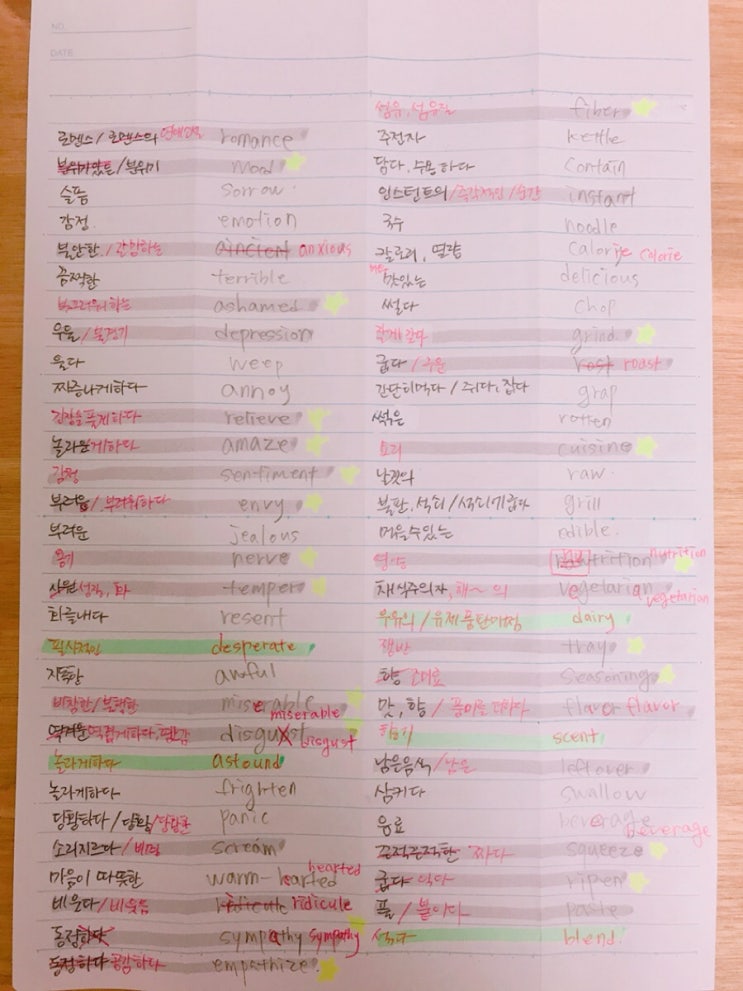 NO.
DATE
로맨스/로맨스의 연애인식 romance
분위기있는/분위기 mood
슬픔 sorrow
감정 emotion
불안한/갈망하는 aincient anxious
끔찍한 terrible
부끄러워하는 ashamed
우울/불경기 depression
울다 weep
짜증나게하다 annoy
긴장을 풀게하다 relieve
놀라운게하다 amaze
감정 sentiment
부러움/부러워하다 envy
부러운 jealous
용기 nerve
성격, 화 temper
화를내다 resent
필사적인 desperate
지독한 awful
비참한/불행한 miserable miserable
역겨운 역겹게하다, 혐오감 disgust disgust
놀라게하다 astound
놀라게하다 frighten
당황하다/당황/당황한 panic
소리지르다/비명 scream
마음이 따뜻한 warm-hearted hearted
비웃다/비웃음 ridicule
동정 sympathy sympathy
동정하다 공감하다 empathize
섬유, 섬유질 fiber
주전자 kettle
담다, 수용하다 contain
인스턴트의/즉각적인/순간 instant
국수 noodle
칼로리, 열량 calorie calorie
매우 맛있는 delicious
썰다 chop
잘게 갈다 grind
굽다/구운 rost roast
간단히먹다/쥐다, 잡다 grap
썩은 rotten
요리 cuisine
날것의 raw
불판, 석쇠/석쇠에굽다 grill
먹을수있는 edible
영양 nutrition nutrition
채식주의자, 채~의 vegetarian vegetarian
우유의/유제품 dairy
쟁반 tray
향 seasoning
맛, 향/풍미를 더하다 flavor flavor
향기 scent
남은음식/남은 leftover
삼키다 swallow
음료 beverage beverage
끈적끈적한 짜다 squeeze
굽다 익다 ripen
풀/붙이다 paste
섞다 blend